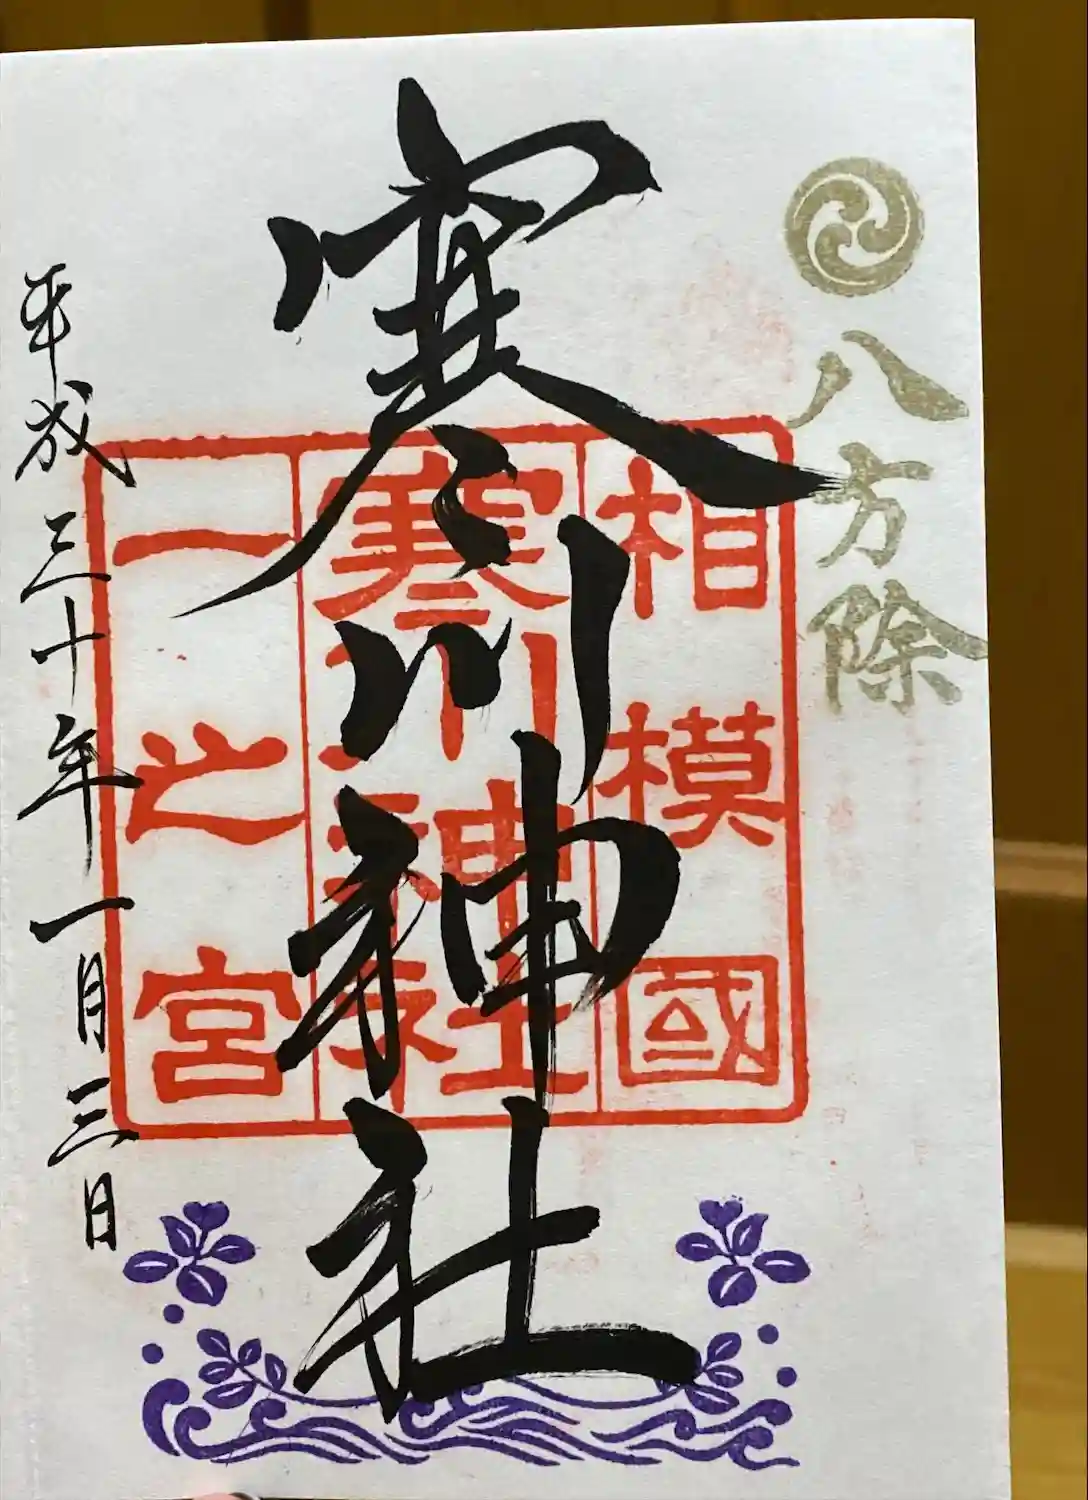 八方除
寒川神社
相模國
寒川神社
一之宮
平成三十年一月三日